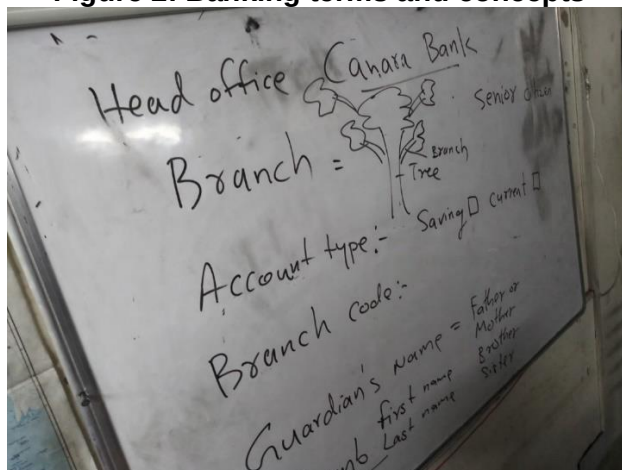 Head office Canara Bank
Senior citizen
Branch =
Branch
Tree
Account type:- Saving □ current □
Branch code:-
Guardian's Name = Father or
Mother
Brother
Sister
First name
Last name